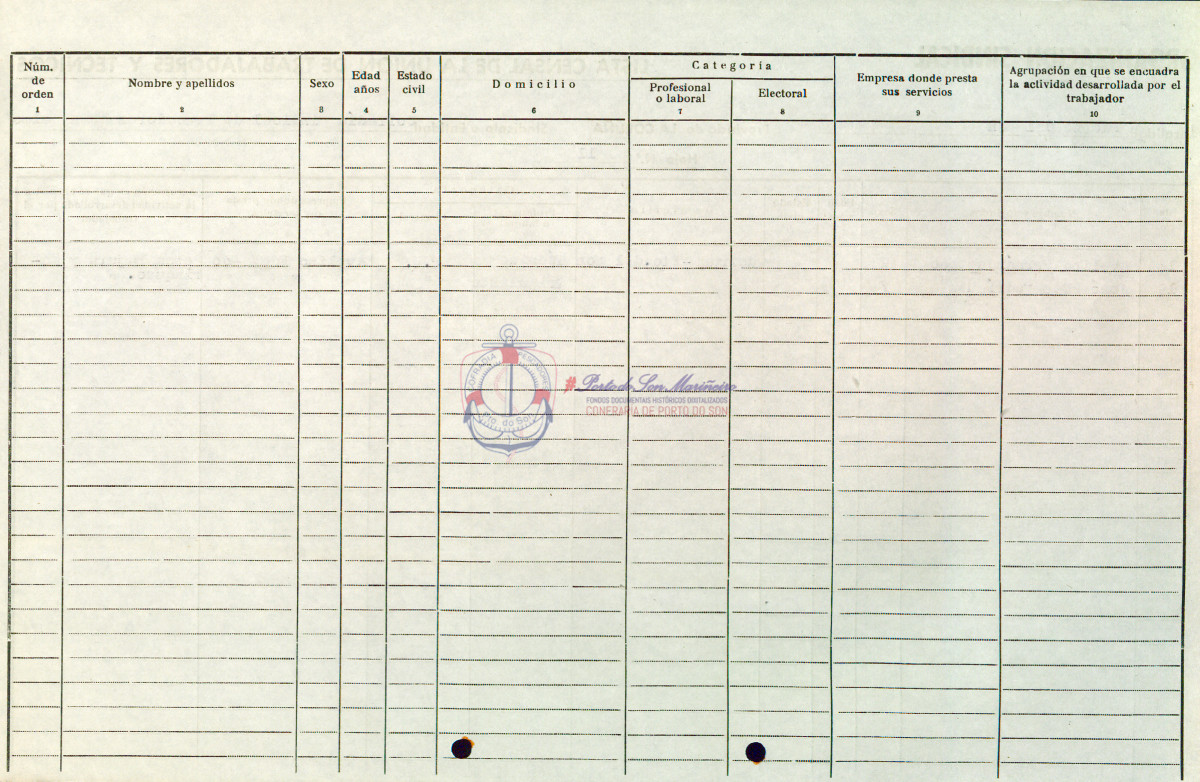 Núm.
de
orden
1
Nombre y apellidos
2
Sexo
3
Edad
años
4
Estado
civil
5
Domicilio
6
Categoría
Profesional
o laboral
7
Electoral
8
Empresa donde presta
sus servicios
9
Agrupación en que se encuadra
la actividad desarrollada por el
trabajador
10
# Porto do Son Mariñeiro
FONDOS DOCUMENTAIS HISTÓRICOS DIXITALIZADOS
CONFRARÍA DE PORTO DO SON